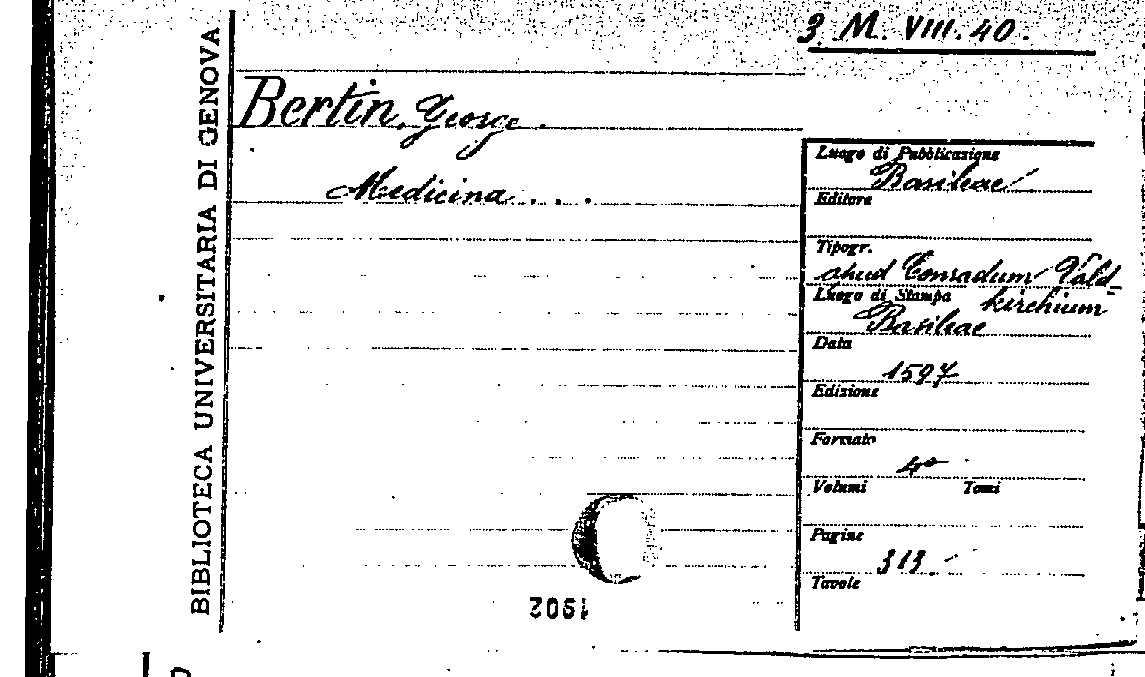 3. M. VIII. 40.
BIBLIOTECA UNIVERSITARIA DI GENOVA
Bertin, George.
Medicina . . .
Luogo di Pubblicazione
Basileae
Editore
Tipogr.
apud Conradum Vald-
kirchium
Luogo di Stampa
Basileae
Data
1597
Edizione
Formato
4º
Volumi Tomi
Pagine
313.
Tavole
1902